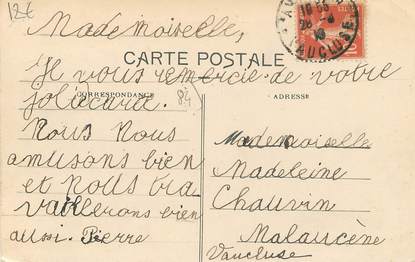 12€
Mademoiselle,
CARTE POSTALE
Je vous remercie de votre
jolie carte.
CORRESPONDANCE
84
Nous nous
amusons bien
et nous tra
vaillerons bien
aussi. Pierre
VAUCLUSE
ADRESSE
Mademoiselle
Madeleine
Chauvin
Malaucène
Vaucluse